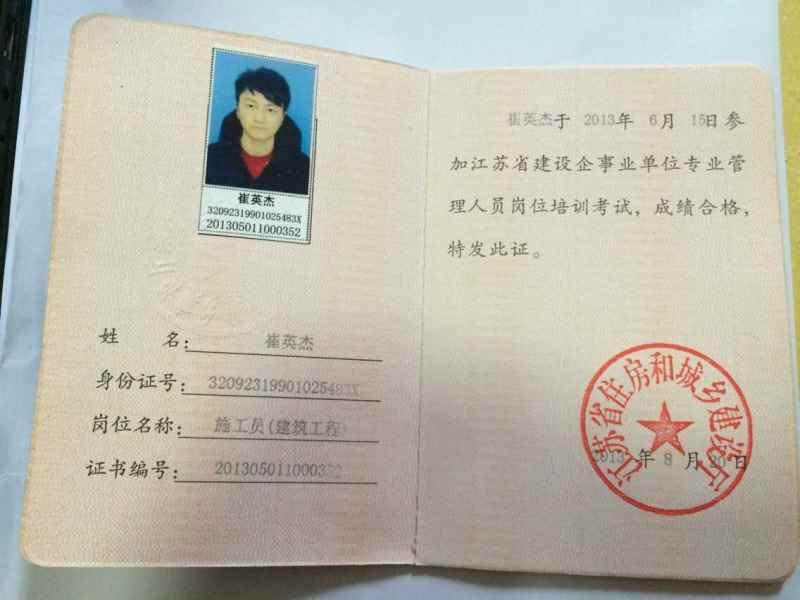 崔英杰
32092319901025483X
201305011000352
姓 名：崔英杰
身份证号：32092319901025483X
岗位名称：施工员(建筑工程)
证书编号：201305011000352
崔英杰于 2013年 6月 15日参
加江苏省建设企事业单位专业管
理人员岗位培训考试，成绩合格，
特发此证。
江苏省住房和城乡建设厅
2013 年 8 月 20 日